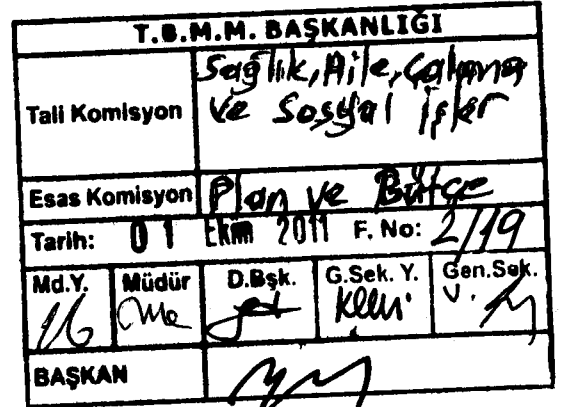 T.B.M.M. BAŞKANLIĞI
Tali Komisyon
Sağlık, Aile, Çalışma
ve Sosyal İşler
Esas Komisyon Plan ve Bütçe
Tarih: 01 Ekim 2011 F. No: 2/19
Md.Y. Müdür D.Bşk. G.Sek. Y. Gen.Sek.
BAŞKAN